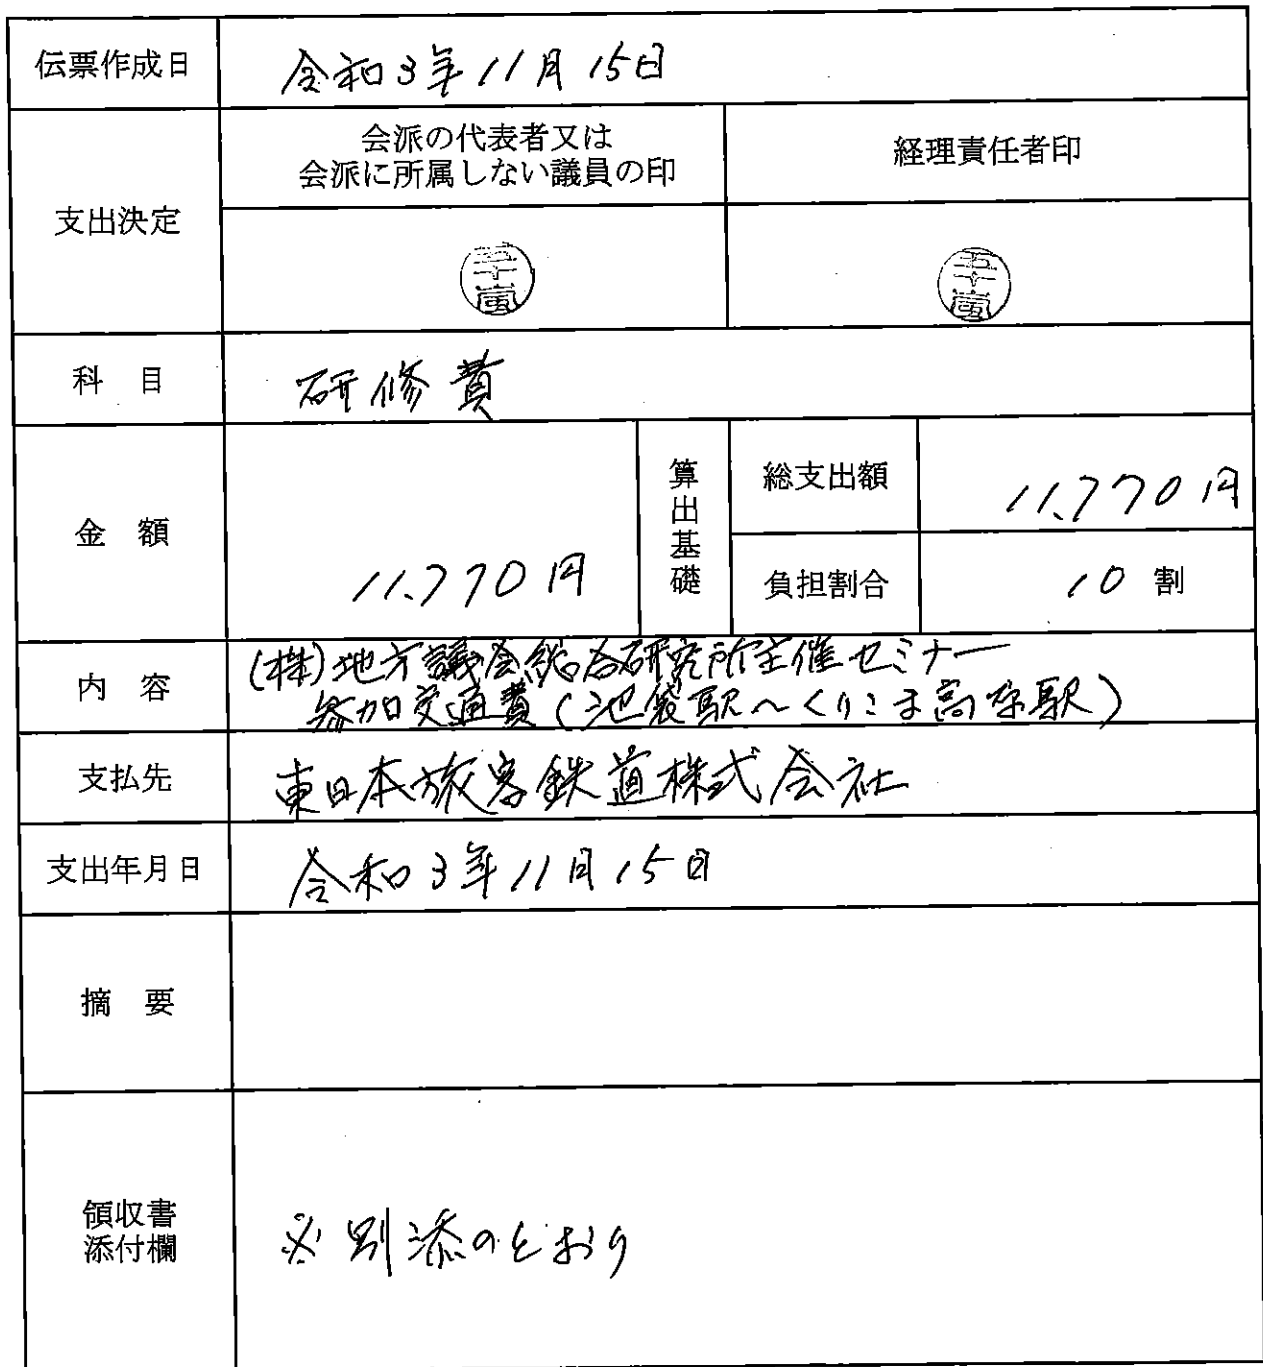 伝票作成日
令和3年11月15日
支出決定
会派の代表者又は
会派に所属しない議員の印
経理責任者印
五十嵐
五十嵐
科 目
研修費
金 額
11,770円
算出基礎
総支出額
11,770円
負担割合
10割
内 容
(株)地方議会総合研究所主催セミナー
参加交通費(池袋駅〜くりこま高原駅)
支払先
東日本旅客鉄道株式会社
支出年月日
令和3年11月15日
摘 要
領収書
添付欄
※別添のとおり